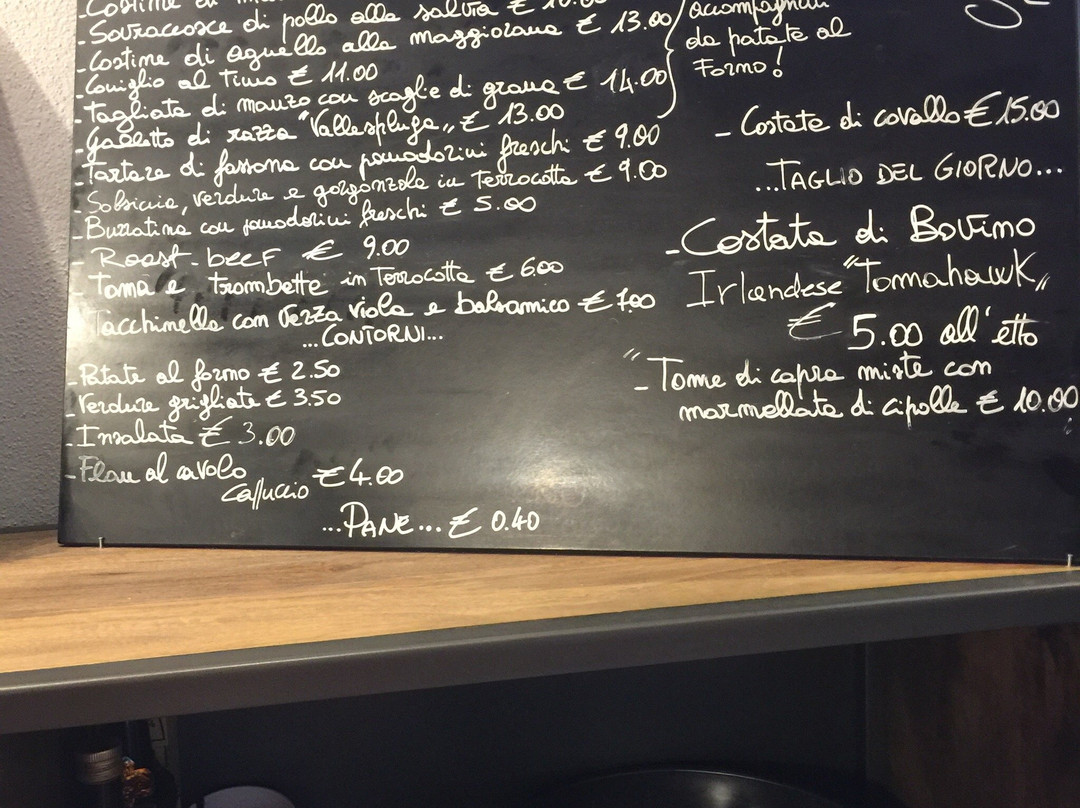 -Costine di
-Sovraccosce di pollo alla salvia € 10.00
-Costine di agnello alla maggiorana € 13.00
-Coniglio al Timo € 11.00
-Tagliata di manzo con scaglie di grana € 14.00
-Galletto di razza "Vallespluga" € 13.00
-Tartare di fassona con pomodorini freschi € 9.00
-Salsiccia, verdure e gorgonzola in Terrocotta € 9.00
-Burratina con pomodorini freschi € 5.00
- Roast-beef € 9.00
- Toma e trombette in Terrocotta € 6.00
Tacchinella con verza viola e balsamico € 7.00
...CONTORNI...
-Patate al forno € 2.50
-Verdure grigliate € 3.50
-Insalata € 3.00
-Flan al cavolo
Cappuccio € 4.00
...PANE... € 0.40
accompagnati
da patate al
Forno!
- Costata di cavallo € 15.00
...TAGLIO DEL GIORNO...
-Costata di Bovino
Irlandese "Tomahawk"
€ 5.00 all'etto
- Tome di capra miste con
marmellata di cipolle € 10.00